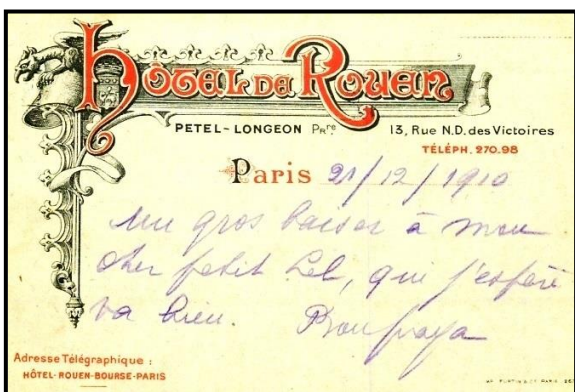 HÔTEL DE ROUEN
PETEL-LONGEON Pʀᵣₑ
13, Rue N.D. des Victoires
TÉLÉPH. 270.98
Paris 21/12/1910
Un gros baiser à mon
cher petit Lel, que j'espère
va bien. Bonpapa
Adresse Télégraphique :
HÔTEL-ROUEN-BOURSE-PARIS